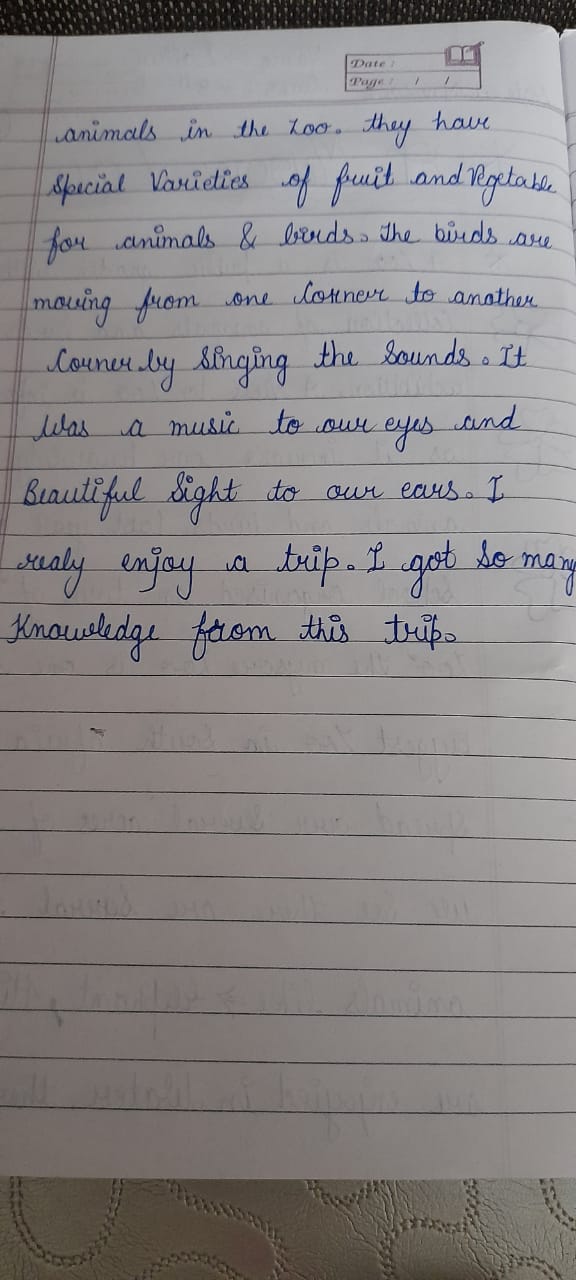 Date :
Page : / /
animals in the zoo. they have
Special Varieties of fruit and Vegetable
for animals & birds. The birds are
moving from one Corner to another
Corner by Singing the Sounds. It
Was a music to our eyes and
Beautiful Sight to our ears. I
realy enjoy a trip. I got So many
Knowledge from this trip.